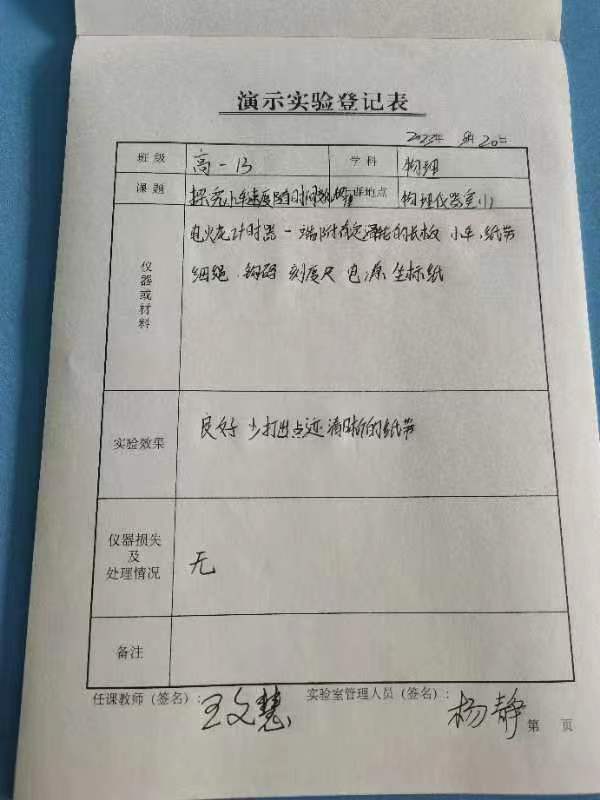 演示实验登记表
2023年 月20日
班级 高一13 学科 物理
课题 探究小车速度随时间 地点 物理仪器室(1)
仪器或材料
电火花计时器 一端附有定滑轮的长板 小车、纸带
细绳 钩码 刻度尺 电源 坐标纸
实验效果 良好 打出点迹清晰的纸带
仪器损失及处理情况 无
备注
任课教师（签名）: 王文慧 实验室管理人员（签名）: 杨静 第 页